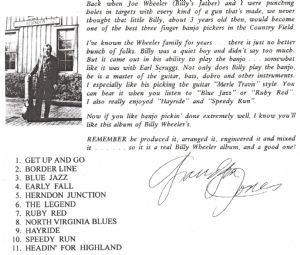 Back when Joe Wheeler (Billy's father) and I were punching
holes in targets with every kind of a gun that's made, we never
thought that little Billy, about 3 years old then, would become
one of the best three finger banjo pickers in the Country Field.
I've known the Wheeler family for years . . . there is just no better
bunch of folks. Billy was a quiet boy and didn't say too much.
But it came out in his ability to play the banjo . . . somewhat
like it was with Earl Scruggs. Not only does Billy play the banjo,
he is a master of the guitar, bass, dobro and other instruments.
I especially like his picking the guitar "Merle Travis" style. You
can hear it when you listen to "Blue Jazz" or "Ruby Red".
I also really enjoyed "Hayride" and "Speedy Run".
Now if you like banjo pickin' done extremely well, I know you'll
like this album of Billy Wheeler's.
REMEMBER he produced it, arranged it, engineered it and mixed
it . . . . . . so it is a real Billy Wheeler album, and a good one!
1. GET UP AND GO
2. BORDER LINE
3. BLUE JAZZ
4. EARLY FALL
5. HERNDON JUNCTION
6. THE LEGEND
7. RUBY RED
8. NORTH VIRGINIA BLUES
9. HAYRIDE
10. SPEEDY RUN
11. HEADIN' FOR HIGHLAND
Grandpa
Jones